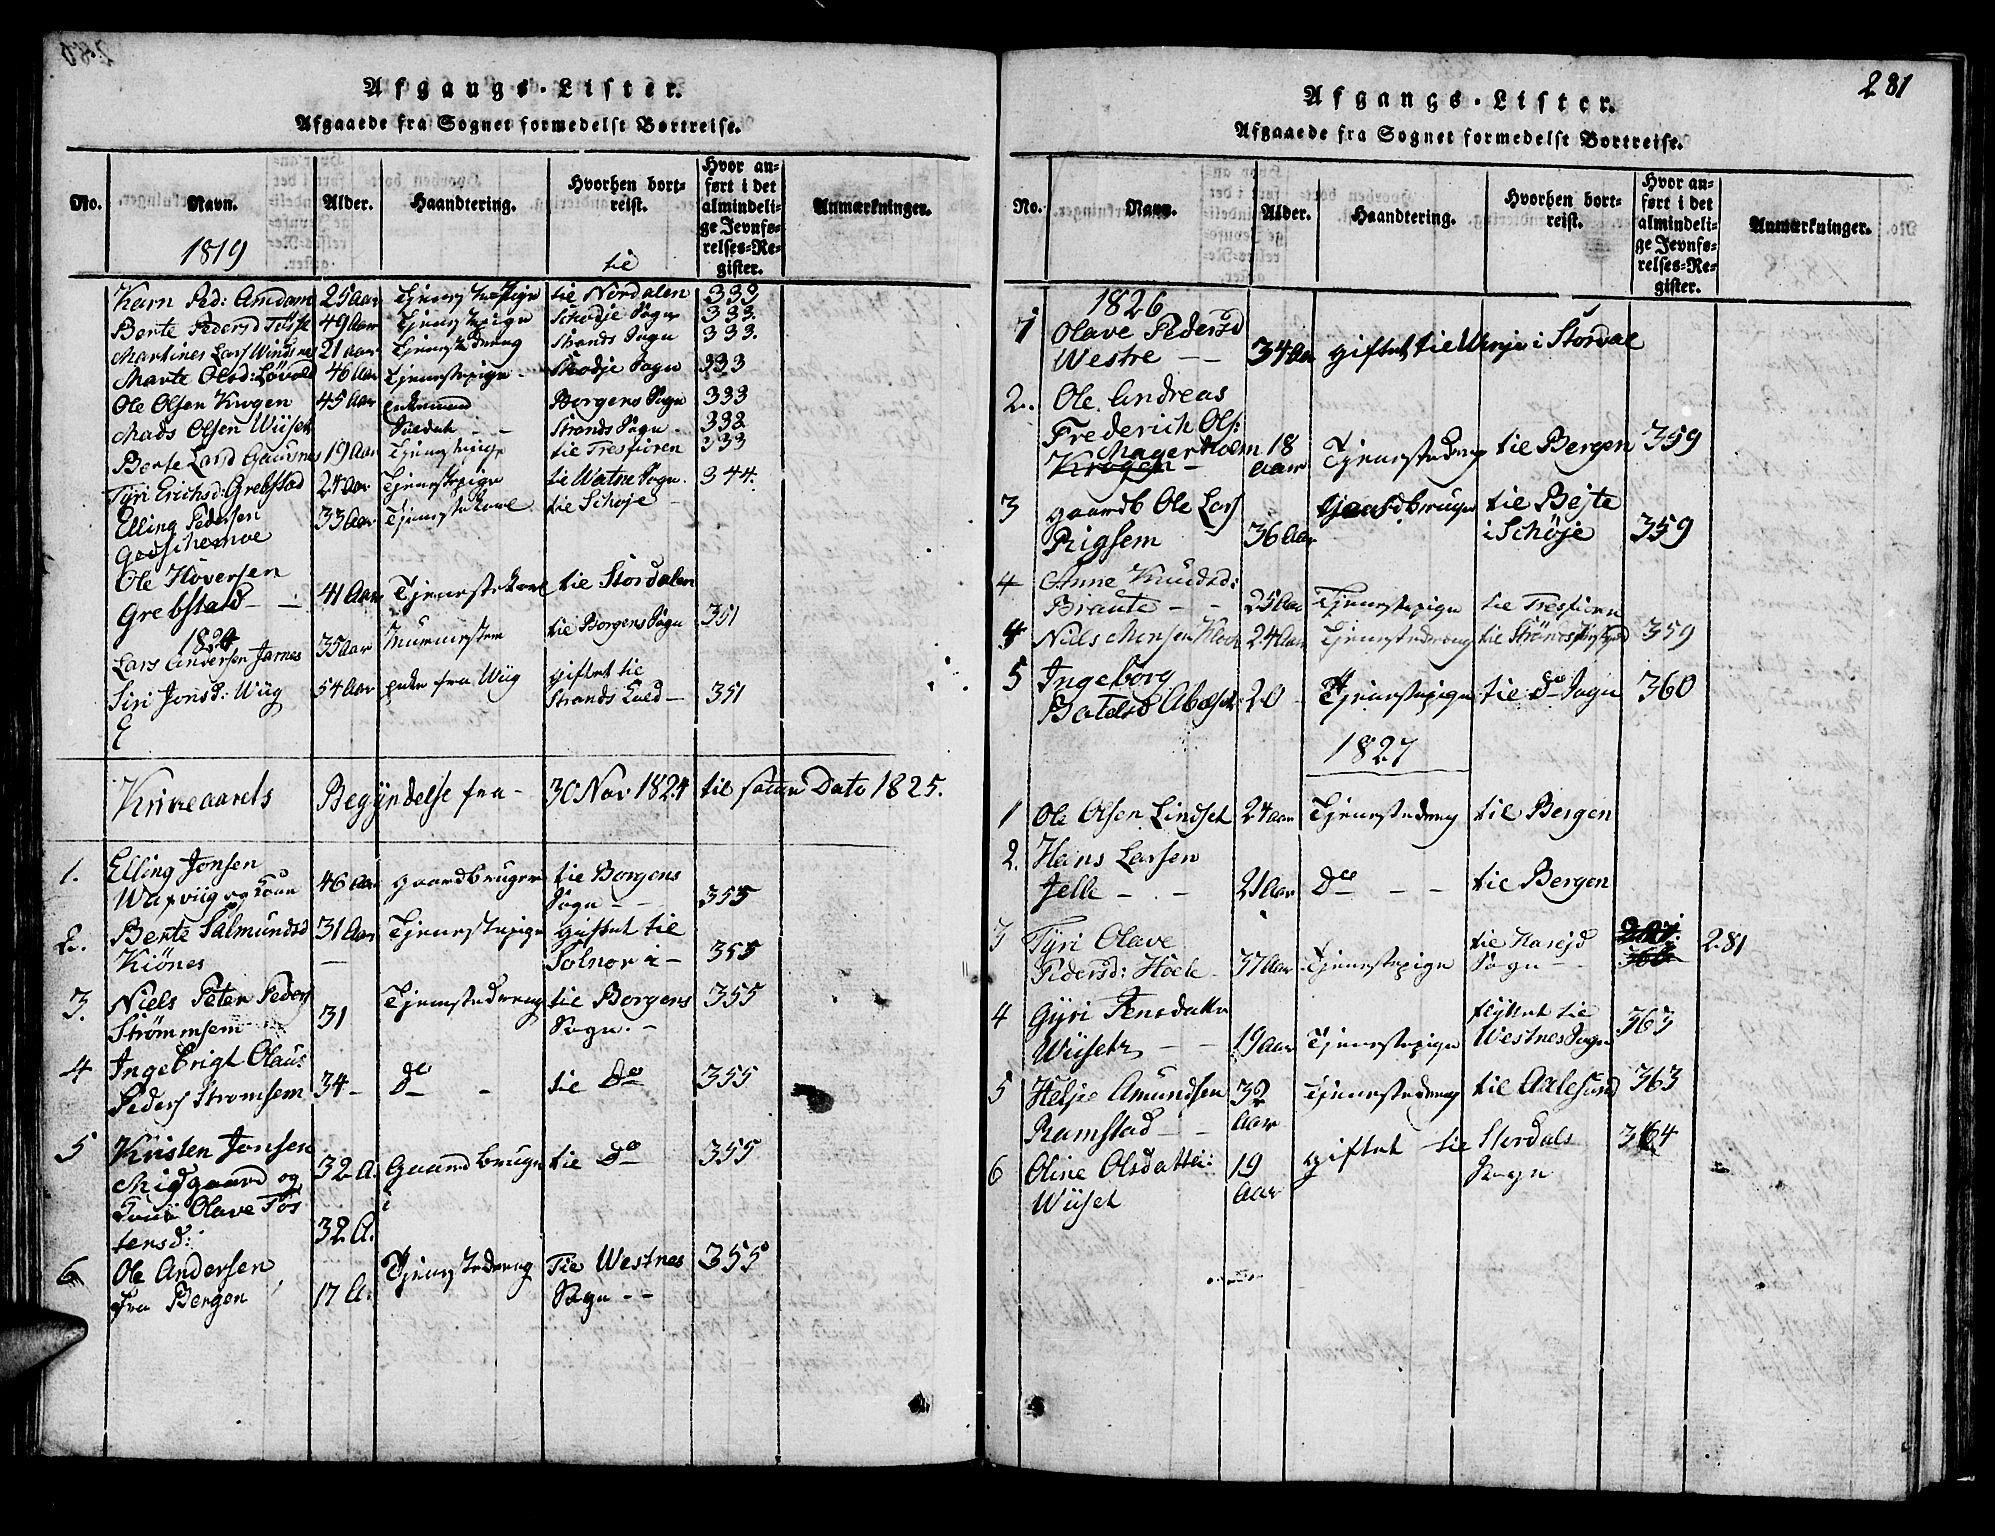 Afgangs-Lister.
Afgaaede fra Sognet formedelst Bortreise.
No. Navn. Alder. Haandtering. Hvorhen bortreist. Hvor anført i det almindelige Jevnførelses-Register. Anmærkninger.
1819 til
Karn Ped: Amdam 25 Aar Tjenestepige til Nordalen 333
Berte Pedersd Tøsse 49 Aar Tjenestepige Schodje Sogn 333.
Martines Lars 21 Aar Tjenestedreng Strands Sogn 333.
Marte Olsd: Løvold 46 Aar Tjenestepige - Skodje Sogn 333
Ole Olsen Krogen 45 Aar Enkemand Borgens Sogn 333
Mads Olsen Wiiset Soldat - - Strands Sogn - 333
Berte Larsd 19 Aar Tjenestepige til Tresfioren 333
Tyri Erichsd: Grebstad 24 aar Tjenestepige til Watne Sogn. 344.
Elling Pedersen 33 Aar Tjenestekarl til Schoje -
Ole Hoversen
Grebstad - - 41 Aar Tjenestekarl til Stordalen
1824
Lars Andersen Jarnes 35 aar til Borgens Sogn 351
Siri Jonsd: Wiig 54 Aar enke fra Wiig giftet til
Strands - 351
Kirkeaarets Begyndelse fra - 30 Nov 1824 til samme Dato 1825.
1. Elling Jonsen
og kone 46 aar gaardbruger til Borgens
Sogn - - 355
2. Berte Salmundsd 31 Aar Tjenestepige giftet til
Kiönes Solnør i - 355
3. Niels Peter Peders
Strømmsem 31 Tjenestedreng til Borgens
Sogn. - 355
4 Ingebrigt Olaus
Peders Stromsem 34 - do - til do 355
5 Kristen Jonsen
Midgaard og 32 A. Gaardbruger til do 355
Olave Tos
tensd: 32 A.
6 Ole Andersen
fra Bergen 17 A. Tjenestedreng Til Westnes
Sogn - - 355
281
Afgangs-Lister.
Afgaaede fra Sognet formedelst Bortreise.
No. Navn. Alder. Haandtering. Hvorhen bortreist. Hvor anført i det almindelige Jevnførelses-Register. Anmærkninger.
1826
1 Olave Pedersd
Westre - - 34 Aar giftet til i Stordal
2. Ole Andreas
Frederich Ols:
Magerholm 18
Krogen - aar Tjenestedreng til Bergen 359
3 gaardb Ole Lars
Rigsem 36 Aar Gaardbruger til Bejte
i Schöje 359
4 Anne Knudsd:
Braute - - 25 Aar Tjenestepige til Tresfioren
4 Niels Monsen 24 Aar Tjenestedreng til 359
5 Ingeborg
Botelsd 20 Tjenestepige til do Sogn 360
1827
1 Ole Olsen Lindset 24 aar Tjenestedreng til Bergen
2. Hans Larsen
Jelle - - 21 Aar do - - til Bergen
3 Tyri Olave
Pedersd: Hoele - 37 Aar Tjenestepige til Harejd
Sogn - - 281
4 Gyri Jensdatter
Wiiseth - - 19 aar Tjenestepige flyttet til
Westnes Sogn 363
5 Helje Amundsen 32 Tjenestedreng til Aalesund 363
Ramstad - - aar
6 Oline Olsdatter: 19 giftet til Stordals 364
Wiiset aar Sogn